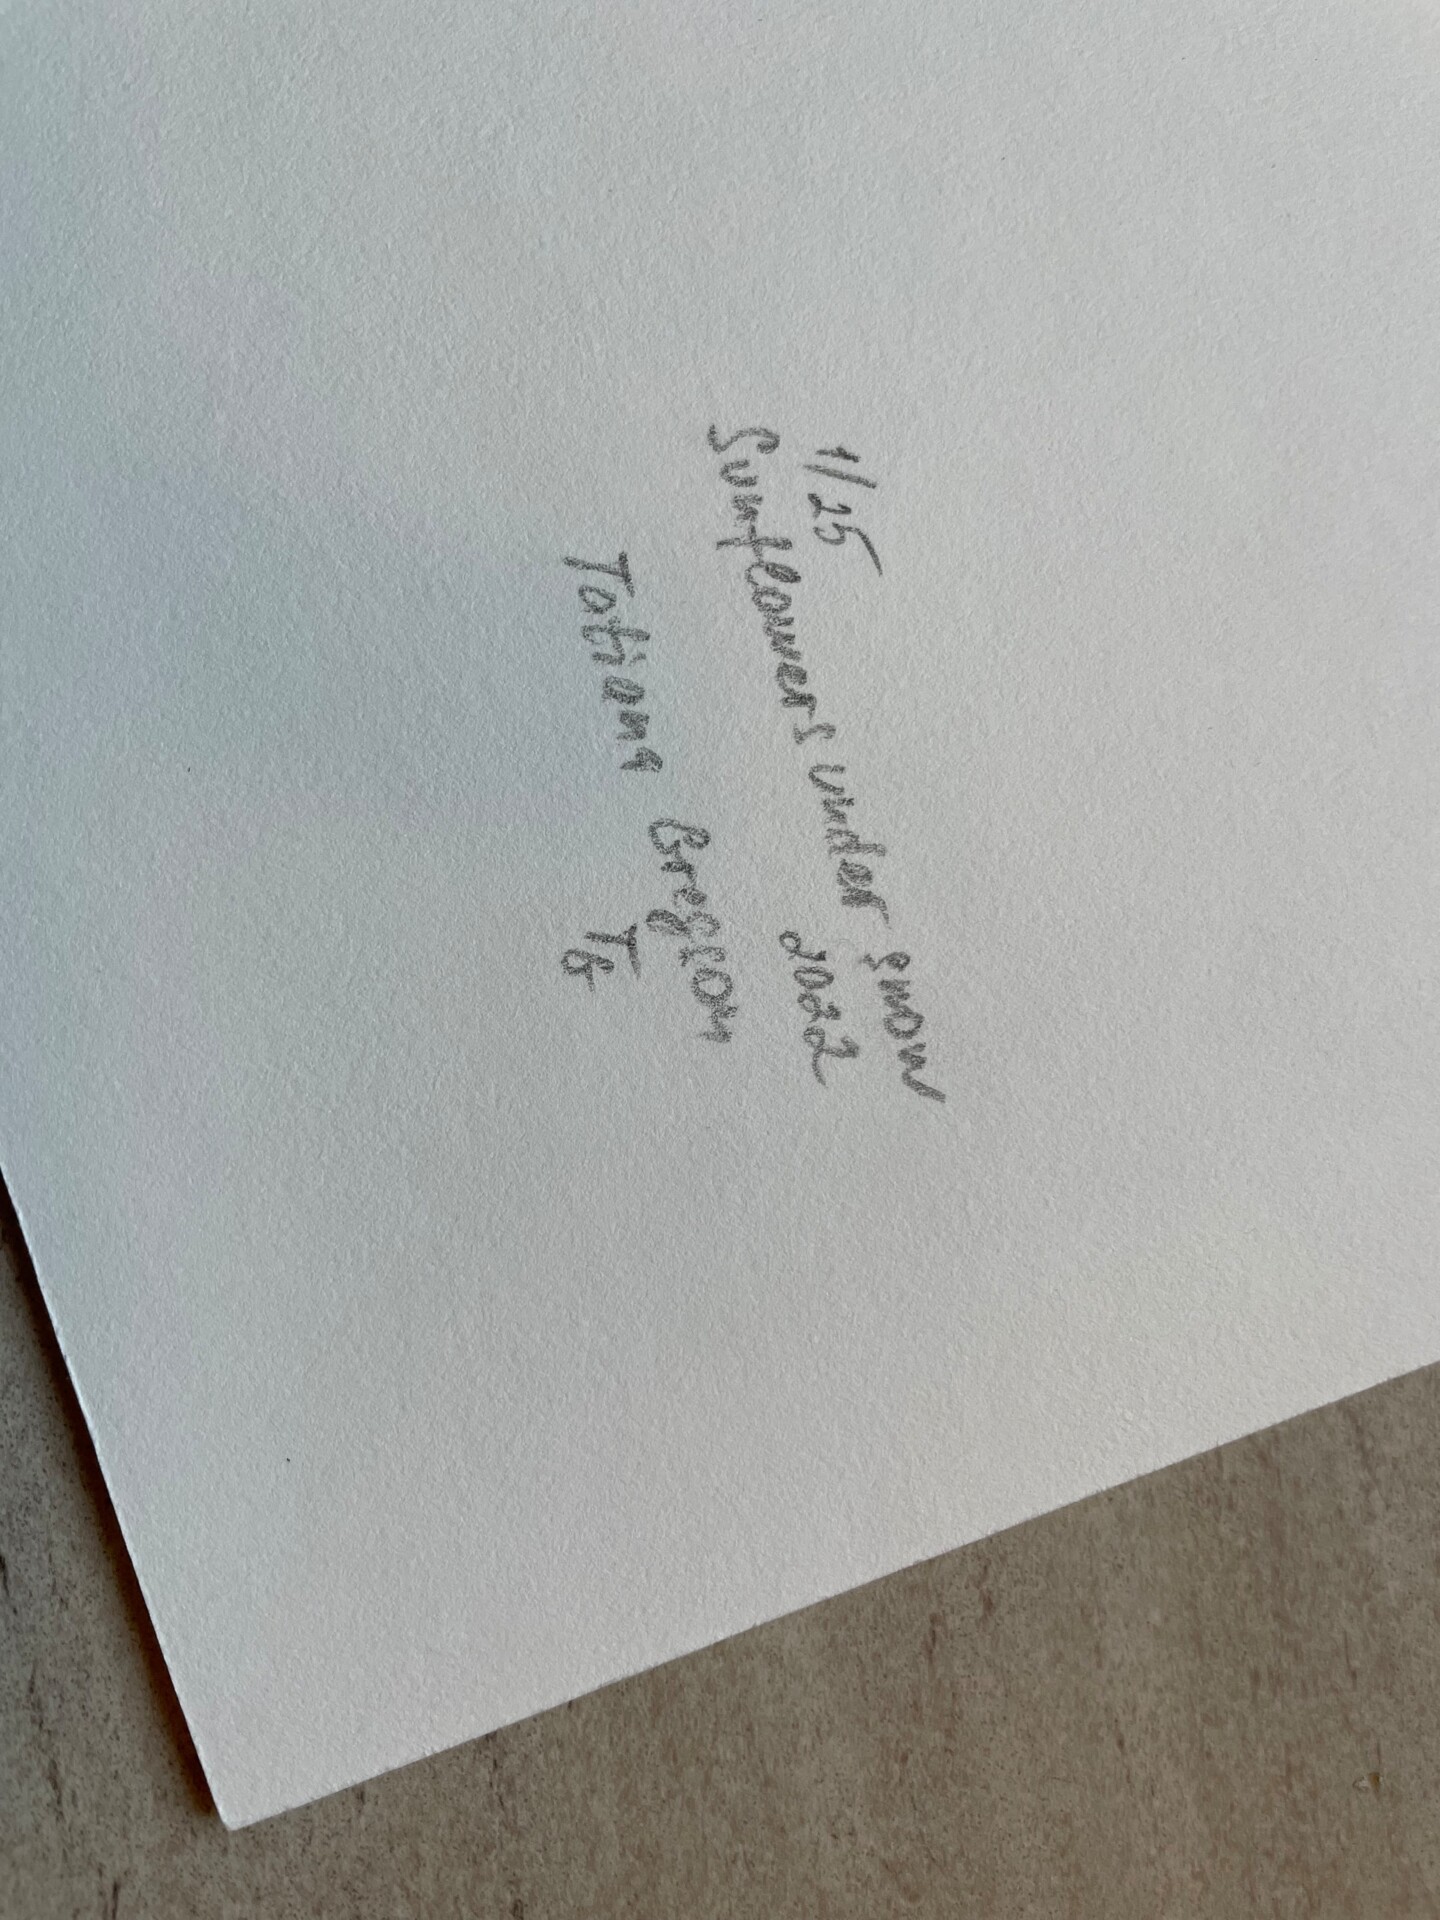 1/25
Sunflowers under snow
2022
Tatiana Gregson
TG